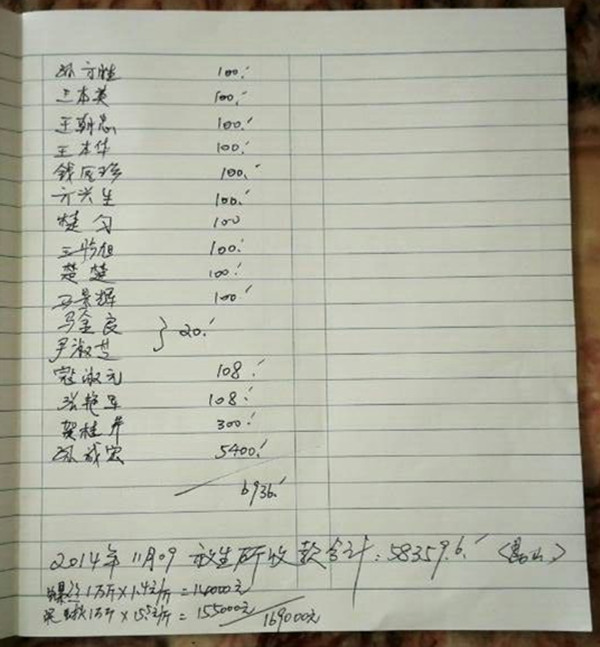 孙方胜 100.
王本英 100.
王朝忠 100.
王本华 100.
钱 100.
方兴生 100.
楚勻 100
王 100.
楚楚 100.
马景辉 100.
马金良 } 20.
尹淑芝
寇淑元 108.
张艳军 108.
贺桂 300.
孙成宏 5400.
6936.
2014年11月09 放生所收款合计: 58359.6.
螺丝1万斤×1.4元/斤=14000元
泥鳅1万斤×15.5元/斤=155000元 169000元